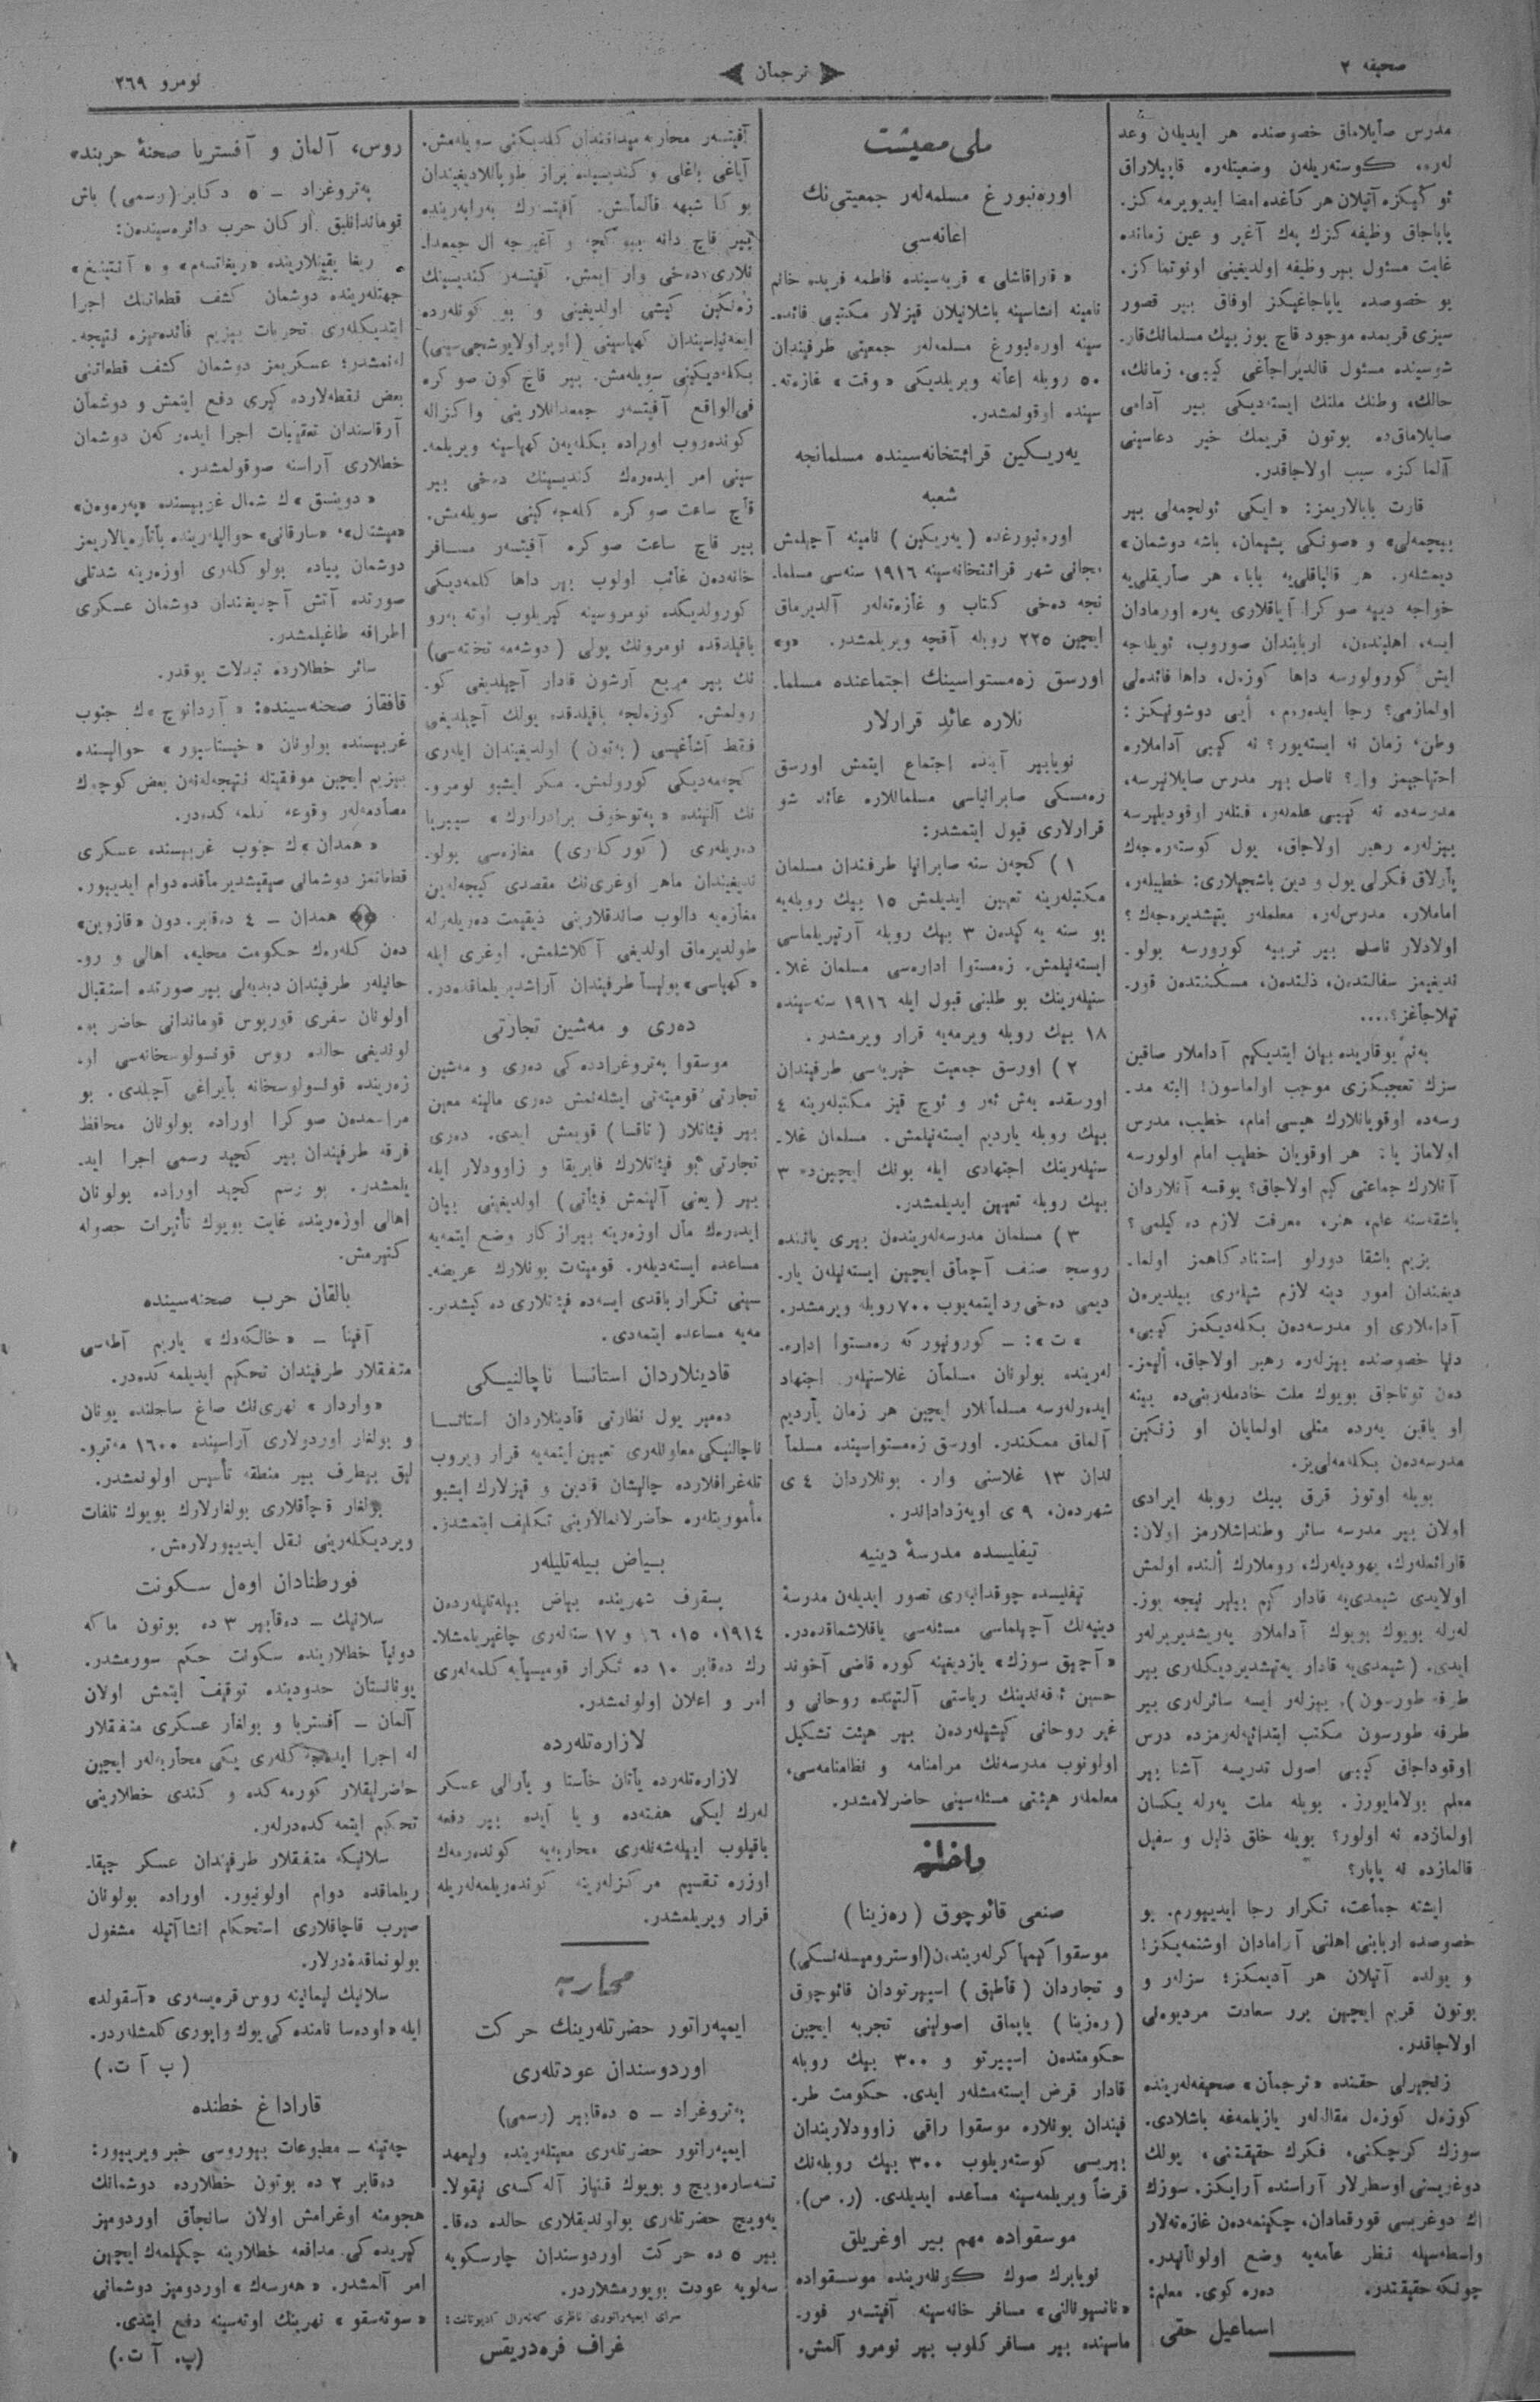 صحیفه ٢
ترجمان
نومرو ٢٦٩
مدرس صایلاماق خصوصنده هر ایدیلەن وعد
لەره، کوستەریلەن وضعیتلەره قاپیلاراق
ئوکیکزه آتیلان هر کأغده امضا ایدیویرمه کز.
یاپاجاق وظیفه کزك پەك آغیر و عین زمانده
غایت مسئول بیر وظیفه اولدیغینی اونوتما کز.
بو خصوصده یاپاجاغیکز اوفاق بیر قصور
سیزی قریمده موجود قاچ یوز بیك مسلمانك قار۔
شوسینده مسئول قالدیراجأغی کیبی، زمانك،
حالك، وطنك ملتك ایستەدیکی بیر آدامی
صایلاماق‌ده بوتون قریمك خیر دعاسینی
آلما کزه سبب اولاجاقدر.
قارت بابالاریمز: «ایکی ئولچمەلی بیر
بیچمەلی» و «صوئکی پشیمان، باشه دوشمان»
دیمشلەر. هر قالپاقلی‌یه بابا، هر صأریقلی‌یه
خواجه دییه صوکرا آیاقلاری یەره اورمادان
ایسه، اهلیندەن، اربابندان صوروب، ئویلەجه
ایش کورولورسه داها کوزەل، داها فائدەلی
اولمازمی؟ رجا ایدەرەم، أیی دوشونیکز:
وطن، زمان نه ایستەیور؟ نه کیبی آداملاره
احتیاجیمز وار؟ ناصل بیر مدرس صایلانیرسه،
مدرسەده نه کیبی علملەر، فنلەر اوقودیلیرسه
بیزلەره رهبر اولاجاق، یول کوستەرەجەك
پأرلاق فکرلی یول و دین باشجیلاری: خطیبلەر،
اماملار، مدرس‌لەر، معلملەر یتیشدیرەجەك؟
اولادلار ناصل بیر تربیه کورورسه بولو۔
ندیغیمز سفالتدەن، ذلتدەن، مسکنتدەن قور۔
تیلاجأغز؟....
بەنم یوقاریده بیان ایتدیکیم آداملار صاقین
سزك تعجبکزی موجب اولماسون! البته مد۔
رسەده اوقویانلارك هپسی امام، خطیب، مدرس
اولاماز یا؛ هر اوقویان خطیب امام اولورسه
آنلارك جماعتی کیم اولاجاق؟ یوقسه آنلاردان
باشقەسنه علم، هنر، معرفت لازم دەکیلمی؟
بزیم باشقا دورلو استنادکاهمز اولما۔
دیغندان امور دینه لازم شیلەری بیلدیرەن
آداملاری او مدرسەدەن بکلەدیکمز کیبی،
دنیا خصوصنده بیزلەره رهبر اولاجاق، ألیمز۔
دەن توتاجاق بویوك ملت خادملەرینی‌ده یینه
او یاقین یەرده مثلی اولمایان او زنکین
مدرسەدەن بکلەمەلی‌یز.
بویله اوتوز قرق بیك روبله ایرادی
اولان بیر مدرسه سائر وطنداشلارمز اولان:
قارائملەرك، یهودیلەرك، روملارك ألنده اولمش
اولایدی شیمدی‌یه قادار کیم بیلیر نیچه یوز۔
لەرله بویوك بویوك آداملار یەریشدیریرلەر
ایدی. (شیمدی‌یه قادار یەتیشدیردیکلەری بیر
طرفه طورسون)، بیزلەر ایسه سائرلەری بیر
طرفه طورسون مکتب ابتدائیەلەرمزده درس
اوقوداجاق کیبی اصول تدریسه آشنا بیر
معلم بولامایورز. بویله ملت یەرله یکسان
اولمازده نه اولور؟ بویله خلق ذلیل و سفیل
قالمازده نه یاپار؟
ایشته جمأعت، تکرار رجا ایدیپورم. بو
خصوصده اربابنی اهلنی آرامادان اوشنمەیکز!
و یولده آتیلان هر آدیمکز؛ سزلەر و
بوتون قریم ایچین برر سعادت مردیوەنی
اولاجاقدر.
زلجیرلی حقنده «ترجمأن» صحیفەلەرینده
کوزەل کوزەل مقالەلەر یازیلمەغه باشلادی.
سوزك کرچکنی، فکرك حقیقتنی، یولك
دوغریسنی اوسطرلار آراسنده آرایکز. سوزك
أك دوغریسی قورقمادان، چکینمەدەن غازەتەلار
واسطەسیله نظر عأمەیه وضع اولونأنیدر.
چونکه حقیقتدر. دەره کوی. معلم:
اسماعیل حقی
ملی معیشت
اورەنبورغ مسلمەلەر جمعیتی‌نك
اعانەسی
«قاراقاشلی» قریەسینده فاطمه فریده خانم
نامینه انشاسینه باشلانیلان قیزلار مکتبی فائده۔
سینه اورەلبورغ مسلمەلەر جمعیتی طرفیندان
٥٠ روبله اعأنه ویریلدیکی «وقت» غازەته۔
سینده اوقولمشدر.
یەریکین قرائتخانەسینده مسلمانجه
شعبه
اورەنبورغده (یەریکین) نامینه آچیلمش
مجانی شهر قرائتخانەسینه ١٩١٦ سنەسی مسلما۔
نجه دەخی کتاب و غأزەتەلەر آلدیرماق
ایچین ٢٢٥ روبله آقچه ویریلمشدر. «و»
اورسق زەمستواسینك اجتماعنده مسلما۔
نلاره عائد قرارلار
نویابیر آینده اجتماع ایتمش اورسق
زەمسکی صابرانیاسی مسلمانلاره عائد شو
قرارلاری قبول ایتمشدر:
١) کچەن سنه صابرانیا طرفندان مسلمان
مکتبلەرینه تعیین ایدیلمش ١٥ بیك روبلەیه
بو سنه یەکیدەن ٣ بیك روبله آرتیریلماسی
ایستەنیلمش. زەمستوا ادارەسی مسلمان غلا۔
سنیلەرینك بو طلبنی قبول ایله ١٩١٦ سنەسینده
١٨ بیك روبله ویرمەیه قرار ویرمشدر.
٢) اورسق جمعیت خیریەسی طرفیندان
اورسقده بەش ئەر و ئوچ قیز مکتبلەرینه ٤
بیك روبله یاردیم ایستەنیلمش. مسلمان غلا۔
سنیلەرینك اجتهادی ایله بونك ایچین‌ده ٣
بیك روبله تعیین ایدیلمشدر.
٣) مسلمان مدرسەلەریندەن بیری یاننده
روسجه صنف آچمأق ایچین ایستەنیلەن یار۔
دیمی دەخی رد ایتمەیوب ٧٠٠ روبله ویرمشدر.
«ت»: ــ کورونیور که زەمستوا اداره۔
لەرینده بولونان مسلمأن غلاسنیلەر اجتهاد
ایدەرلەرسه مسلمأنلار ایچین هر زمان یأردیم
آلماق ممکندر. اورسق زەمستواسینده مسلمأ
نلدان ١٣ غلاسنی وار. بونلاردان ٤ ی
شهردەن، ٩ ی اویەزدادأندر.
تیفلیسده مدرسۀ دینیه
تیفلیسده چوقدانبەری تصور ایدیلەن مدرسۀ
دینیەنك آچیلماسی مسئلەسی یاقلاشماقدەدر.
«آچیق سوزك» یازدیغینه کوره قاضی آخوند
حسین ئەفەندینك ریاستی آلتینده روحانی و
غیر روحانی کیشیلەردەن بیر هیئت تشکیل
اولونوب مدرسەنك مرامنامه و نظامنامەسی،
معلملەر هیئتی مسئلەسینی حاضرلامشدر.
داخلیه
صنعی قائوچوق (رەزینا)
موسقوا کیمیاکرلەریندەن (اوسترومیسلەنسکی)
و تجاردان (قأطیق) اسپیرتودان قائوچوق
(رەزینا) یاپماق اصولینی تجربه ایچین
حکومتدەن اسپیرتو و ٣٠٠ بیك روبله
قادار قرض ایستەمشلەر ایدی. حکومت طر۔
فیندان بونلاره موسقوا راقی زاوودلاریندان
بیریسی کوستەریلوب ٣٠٠ بیك روبلەنك
قرضأ ویریلمەسینه مسأعده ایدیلدی. (ر. ص).
موسقواده مهم بیر اوغریلق
نویابرك صوك کونلەرینده موسقواده
«ناتسیونالنی» مسافر خانەسینه آفیتسەر فور۔
ماسینده بیر مسافر کلوب بیر نومرو آلمش.
آفیتسەر محاربه میدانیندان کلدیکنی سویلەمش.
آیاغی باغلی و کندیسیده بیراز طوپاللادیغیندان
بوکا شبهه قالمأمش. آفیتسەرك بەرابەرینده
بیر قاچ دانه بیوکچه و آغیرجه ال جمعدا۔
نلاری دەخی وار ایمش. آفیتسەر کندیسینك
زەنکین کیشی اولدیغینی و بو کونلەرده
ایمەنیاسیندان کهیاسینی (اوپراولایوشچی‌سینی)
بکلەدیکینی سویلەمش. بیر قاچ کون صوکره
فی‌الواقع آفیتسەر جمعدانلارینی واکزاله
کوندەروب اوراده بکلەیەن کهیاسینه ویریلمه۔
سینی امر ایدەرەك کندیسینك دەخی بیر
قاچ ساعت صوکره کلەجەکینی سویلەمش.
بیر قاچ ساعت صوکره آفیتسەر مسافر
خانەدەن غائب اولوب بیر داها کلمەدیکی
کورولدیکده نومروسینه کیریلوب اوته بەرو
باقیلدقده نومرونك پولی (دوشەمه تخته‌سی)
نك بیر مربع آرشون قادار آچیلدیغی کو۔
رولمش. کوزەلجه باقیلدقده پولك آچیلدیغی
فقط آشأغیسی (بەتون) اولدیغیندان ایلەری
کچەمەدیکی کورولمش. مکر ایشبو نومرو۔
نك آلتینده «پەتوخوف برادرلەرك» سیبیریا
دەریلەری (کورکلەری) مغازەسی بولو۔
ندیغیندان ماهر اوغری‌نك مقصدی کیجەلەین
مغأزەیه دالوب صاندقلارینی ذیقیمت دەریلەرله
طولدیرماق اولدیغی آکلاشلمش. اوغری ایله
«کهیاسی» پولیسأ طرفیندان آراشدیریلماقدەدر.
دەری و مەشین تجارتی
موسقوا پەتروغراددەکی دەری و مەشین
تجارتی قومیتەتی ایشلەنمش دەری مالینه معین
بیر فیئاتلار (تاقسا) قویمش ایدی. دەری
تجارتی بو فیئاتلارك فابریقا و زاوودلار ایله
بیر (یعنی آلینمش فیئأتی) اولدیغینی بیان
ایدەرەك مأل اوزەرینه بیراز کار وضع ایتمەیه
مساعده ایستەدیلەر. قومیتەت بونلارك عریضه۔
سینی تکرار باقدی ایسەده فیئاتلاری دەکیشدیر۔
مەیه مساعده ایتمەدی.
قادینلاردان استانسا ناچالنیکی
دەمیر یول نظارتی قأدینلاردان استانسا
ناچالنیکی معاونلەری تعیین ایتمەیه قرار ویروب
تلەغرافلارده چالیشان قادین و قیزلارك ایشبو
مأموریتلەره حأضرلانمالارینی تکلیف ایتمشدر.
بیاض بیلەتلیلەر
پسقوف شهرینده بیاض بیلەتلیلەردەن
١٩١٤، ١٥، ١٦ و ١٧ سنەلەری چاغیریلمشلا۔
رك دەقابر ١٠ ده تکرار قومیسیایه کلمەلەری
امر و اعلان اولونمشدر.
لازارەتلەرده
لازارەتلەرده یأتان خأستا و یأرالی عسکر
لەرك ایکی هفتەده و یا آیده بیر دفعه
باقیلوب اییلەشەنلەری محاربەیه کوندەرمەك
اوزره تقسیم مرکزلەرینه کوندەریلمەلەریله
قرار ویریلمشدر.
محاربه
ایمپەراتور حضرتلەرینك حرکت
اوردوسندان عودتلەری
پەتروغراد ــ ٥ دەقابیر (رسمی)
ایمپەراتور حضرتلەری معیتلەرینده ولیعهد
تسەسارەویچ و بویوك قنیاز آلەکسەی نیقولا۔
یەویچ حضرتلەری بولوندیقلاری حالده دەقا۔
بیر ٥ ده حرکت اوردوسندان چارسکویه
سەلویه عودت بویورمشلاردر.
سرای ایمپەراتوری ناظری کەنەرال آدیوتانت:
غراف فرەدریقس
روس، آلمان و آفستریا صحنۀ حربنده
پەتروغراد ــ ٥ دکابر (رسمی) باش
قوماندانلیق ارکان حرب دائرەسیندەن:
ریغا یقینلارینده «ریغانسەم» و «آنتینغ»
جهتلەرینده دوشمان کشف قطعاتنك اجرا
ایتدیکلەری تحریات بیزیم فأئدەمیزه نتیجه۔
لەنمشدر؛ عسکریمز دوشمان کشف قطعاتنی
بعض نقطەلارده کیری دفع ایتمش و دوشمأن
آرقاسندان تعقیبات اجرا ایدەرکەن دوشمان
خطلاری آراسنه صوقولمشدر.
«دوینسق»ك شمال غربیسنده «پەرەوەن»
«میشتەل»، «سارقانی» حوالیلەرینده باتارەیالاریمز
دوشمان پیاده بولوکلەری اوزەرینه شدتلی
صورتده آتش آچدیغندان دوشمان عسکری
اطرافه طاغیلمشدر.
سائر خطلارده تبدلات یوقدر.
قافقاز صحنەسینده: «آردانوچ»ك جنوب
غربیسنده بولونان «خیستاسور» حوالیسنده
بیزیم ایچین موفقیتله نتیجەلەنەن بعض کوچوك
مصأدمەلەر وقوعه کلمەکدەدر.
«همدان»ك جنوب غربیسنده عسکری
قطعاتمز دوشمانی صیقیشدیرمأقده دوام ایدییور.
همدان ــ ٤ دەقابر. دون «قازوین»
دەن کلەرەك حکومت محلیه، اهالی و رو۔
حانیلەر طرفیندان دبدبەلی بیر صورتده استقبال
اولونان سفری قورپوس قوماندانی حاضر بو۔
لوندیغی حالده روس قونسولوسخانەسی او۔
زەرینده قونسولوسخانه بأیراغی آچلدی. بو
مراسمدەن صوکرا اوراده بولونان محافظ
فرقه طرفیندان بیر کچید رسمی اجرا اید۔
یلمشدر. بو رسم کچید اوراده بولونان
اهالی اوزەرینده غایت بویوك تأثیرات حصوله
کتیرمش.
بالقان حرب صحنەسینده
آفینا ــ «خالکەدك» یاریم آطەسی
متفقلار طرفیندان تحکیم ایدیلمەکدەدر.
«واردار» نهری‌نك صاغ ساحلنده یونان
و بولغار اوردولاری آراسینده ١٦٠٠ مەترو۔
لیق بیطرف بیر منطقه تأسیس اولونمشدر.
بولغار قچأقلاری بولغارلارك بویوك تلفات
ویردیکلەرینی نقل ایدییورلارمش.
فورطنادان اوەل سکونت
سلانیك ــ دەقأبیر ٣ ده بوتون ماکه
دونیأ خطلارینده سکونت حکم سورمشدر.
یونانستان حدودینده توقیف ایتمش اولان
آلمان ــ آفستریا و بولغار عسکری متفقلار
له اجرا ایدەجەکلەری یکی محأربەلەر ایچین
حاضرلیقلار کورمەکده و کندی خطلارینی
تحکیم ایتمەکدەدرلەر.
سلانیکه متفقلار طرفیندان عسکر چیقا۔
ریلماقده دوام اولونیور. اوراده بولونان
صیرب قاچاقلاری استحکام انشاآتیله مشغول
بولونماقدەدرلار.
سلانیك لیمانینه روس قرەیسەری «آسقولد»
ایله «اودەسا نامنده‌کی یوك واپوری کلمشلەردر.
(پ آ ت.)
قاراداغ خطنده
چەتینه ــ مطبوعات بیوروسی خبر ویرییور:
دەقابر ٢ ده بوتون خطلارده دوشمانك
هجومنه اوغرامش اولان سانجأق اوردومیز
کیریده‌کی مدافعه خطلارینه چکیلمەك ایچین
امر آلمشدر. «هەرسەك» اوردومیز دوشمانی
«سوتەسقو» نهرینك اوتەسینه دفع ایتدی.
(پ. آ ت.)